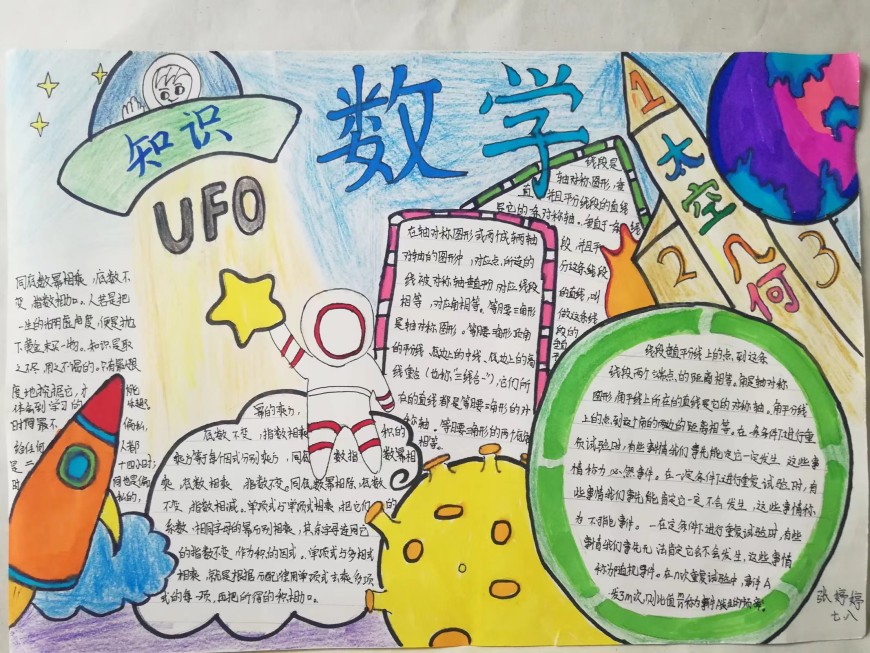 知识
UFO
数学
1
太空几何
2
3
同底数幂相乘，底数不
变，指数相加。人若是把
一生的光阴虚度，便是抛
下黄金未买一物。知识是取
之不尽，用之不竭的。只有最大限
度地挖掘它，才
体会到学习的
乐趣。
幂的乘方，
底数不变，指数相乘
积的
乘方等于每个因式分别乘方，同底
数幂相
乘，底数相乘，指数不变。同底数幂相除，底数
不变，指数相减。单项式与单项式相乘，把它们
的
系数、相同字母的幂分别相乘，其余字母连同它
的指数不变，作为积的因式。单项式与多项式
相乘，就是根据分配律用单项式去乘多项
式的每一项，再把所得的积相加。
在轴对称图形或两个成轴
对称的图形中，对应点所连的
线被对称轴垂直平分，对应线段
相等，对应角相等。等腰三角形
是轴对称图形。等腰三角形顶角
的平分线、底边上的中线、底边上的高
线重合（也称“三线合一”），它们所
在的直线都是等腰三角形的对
称轴。等腰三角形的两个底角
相等。
线段是
轴对称图形，垂
直并且平分线段的直线
是它的一条对称轴。垂直于一条线
段，并且平
分这条线段
的直线，叫
做这条线
段的
线段垂直平分线上的点，到这条
线段两个端点的距离相等。角是轴对称
图形，角平分线所在的直线是它的对称轴。角平分线
上的点，到这个角的两边的距离相等。在一定条件下进行重
复试验时，有些事情我们事先能肯定它一定发生，这些事
情称为必然事件。在一定条件下进行重复试验时，有
些事情我们事先能肯定它一定不会发生，这些事情称
为不可能事件。在一定条件下进行重复试验时，有些
事情我们事先无法肯定它会不会发生，这些事情
称为随机事件。在n次重复试验中，事件A
发生了m次，则比值
张婷婷
七八